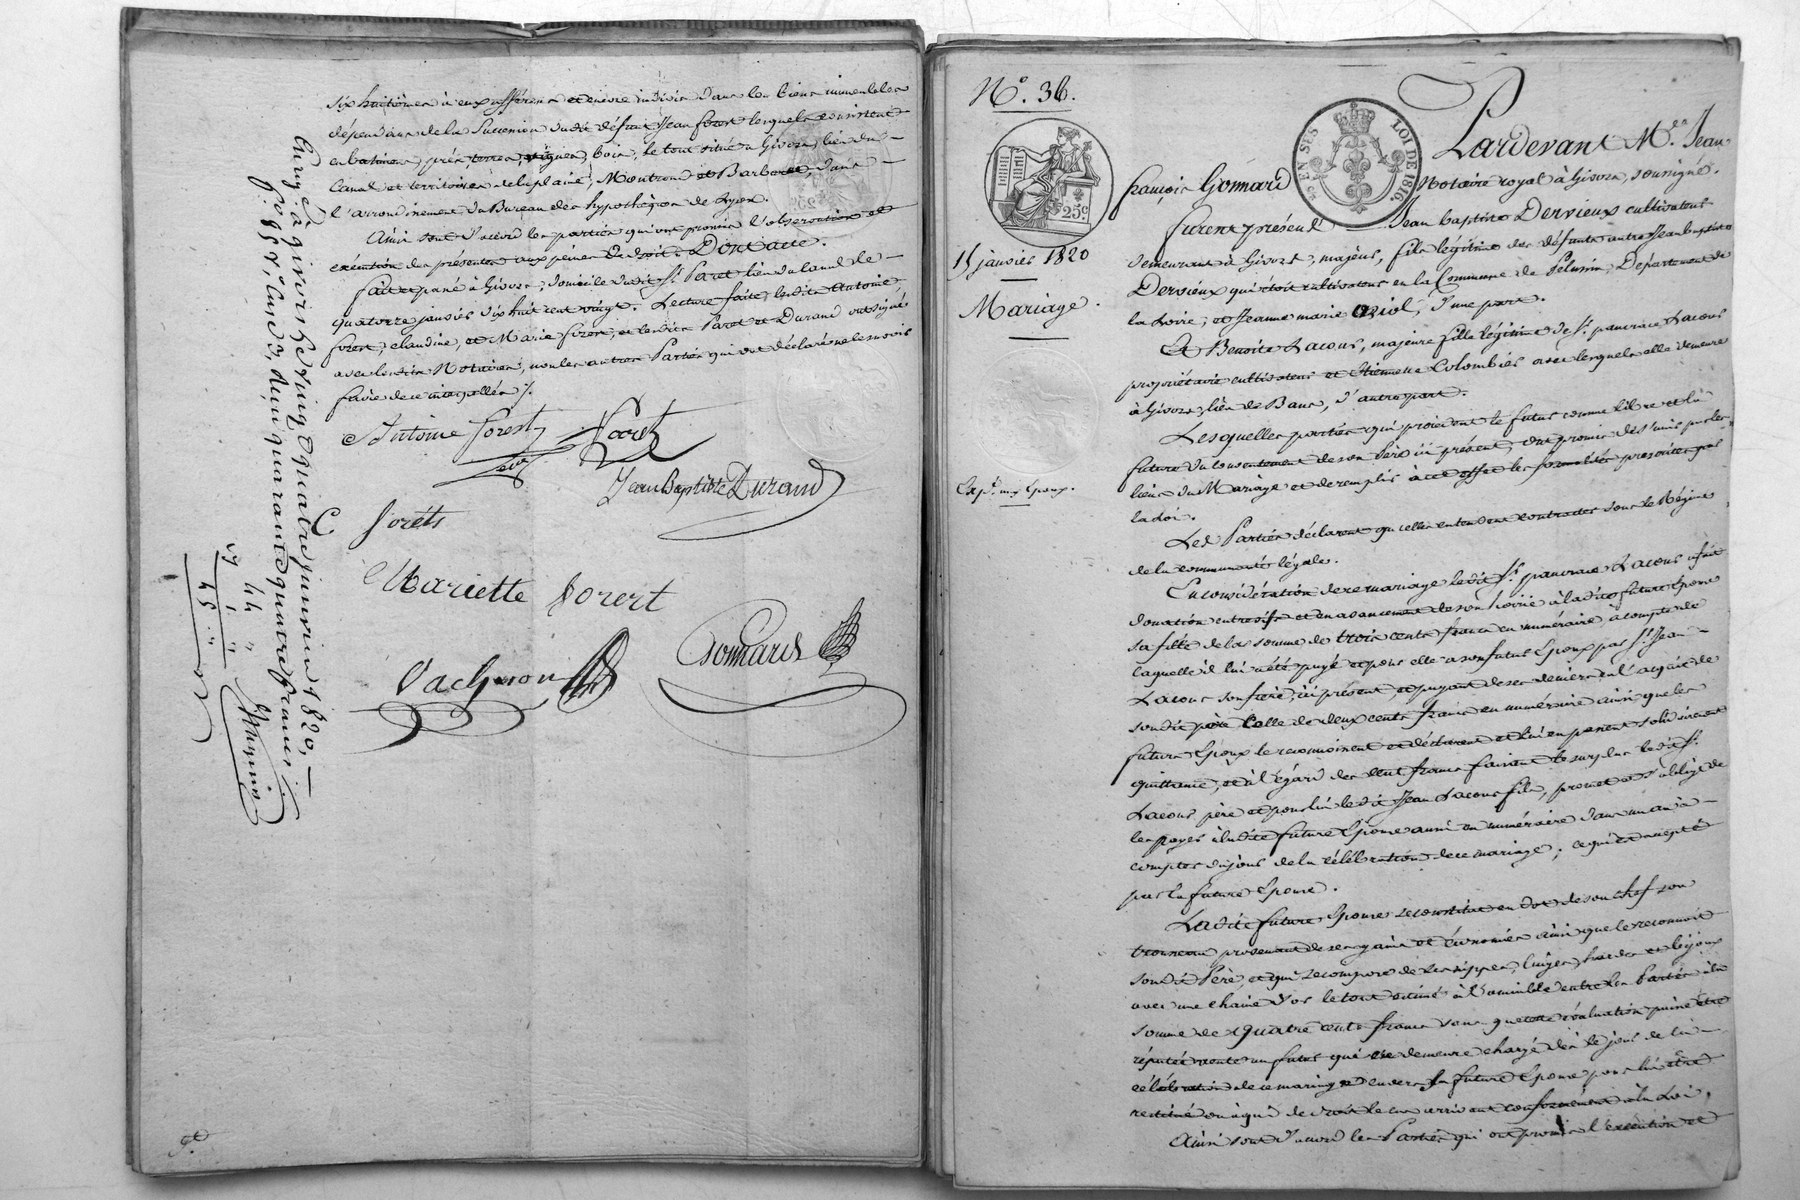 six huitièmes à eux afférens et encore indivis dans les biens immeubles
dépendans de la succession dudit défunt Jean forest lesquels consistent
en batimens, prés, terres, vignes, bois, le tout situé à Givors, lieu du
Canal et territoires de la plaine, Montrond et Barboret, dans
l'arrondissement du Bureau des hypothèques de Lyon.
Ainsi sont d'accord les parties qui ont promis l'observation et
exécution des présentes aux peines de droit. Dont acte.
fait et passé à Givors, domicile dudit Sr. Paret lieu du Canal le
quatorze janvier dix huit cent vingt. Lecture faite, lesdits Antoine,
forest, claudine, et Marie forest, et lesdits Paret et Durand ont signé
avec lesdits Notaires, non les autres Parties qui ont déclaré ne le savoir
faire de ce interpellés ./.
Antoine forest
Paret
Jean Baptiste Durand
C forêts
Mariette forert
Vachon
Gonnard
Enregé à givors le vingt quatre janvier 1820,
fo. 95 Vo. Case 3, Reçu quarante quatre francs
44 "
N°. 36.
EN SUS
LOI DE 1816.
25c
15 janvier 1820
Mariage.
Expé. aux Epoux.
Pardevant Me. Jean
françois Gonnard Notaire royal à Givors, soussigné.
furent présens Jean baptiste Dervieux cultivateur
demeurant à Givors, majeur, fils légitime des défunts autre Jean baptiste
Dervieux qui étoit cultivateur en la Commune de Pelussin, Département de
la Loire, et Jeanne marie Oriol, d'une part.
Et Benoite Lacour, majeure fille légitime de Sr. pancrace Lacour
propriétaire cultivateur et Etiennette Colombier avec lesquels elle demeure
à Givors, lieu de Bans, d'autre part.
Lesquelles parties qui procèdent le futur comme libre et la
future du consentement de son père ici présent, ont promis de s'unir par les
liens du Mariage et de remplir à cet effet les formalités prescrites par
la Loi.
Les Parties déclarent qu'elles entendent contracter sous le Régime
de la communauté légale.
En considération de ce mariage ledit Sr. pancrace Lacour a fait
donation entrevifs et en avancement de son hoirie à ladite future Epouse
sa fille de la somme de trois cents francs en numéraire à compte de
laquelle il lui a été payé et pour elle à son futur Epoux par Sr. Jean
Lacour son frère, ici présent et payant de ses deniers en l'acquit de
sondit père celle de deux cents francs en numéraire ainsi que les
futurs Epoux le reconnoissent et déclarent et lui en passent solidairement
quittance, et à l'égard des cent francs faisant le surplus ledit Sr.
Lacour père et pour lui ledit Jean Lacour fils, promet et s'oblige de
les payer à ladite future Epouse aussi en numéraire dans un an à
compter du jour de la célébration de ce mariage; ce qui est accepté
par la future Epouse.
Ladite future Epouse se constitue en dot de son chef son
trousseau provenant de ses gains et économies ainsi que le reconnoit
sondit Père, et qui se compose de ses nippes, linges, hardes et bijoux
avec une chaine d'or le tout estimé à l'amiable entre les Parties à la
somme de quatre cents francs sans que cette évaluation puisse être
réputée vente au futur qui en demeure chargé dès le jour de la
célébration de ce mariage envers la future Epouse pour lui être
restitué ou à qui de droit le cas arrivant conformément à la Loi.
Ainsi sont d'accord les Parties qui ont promis l'exécution et